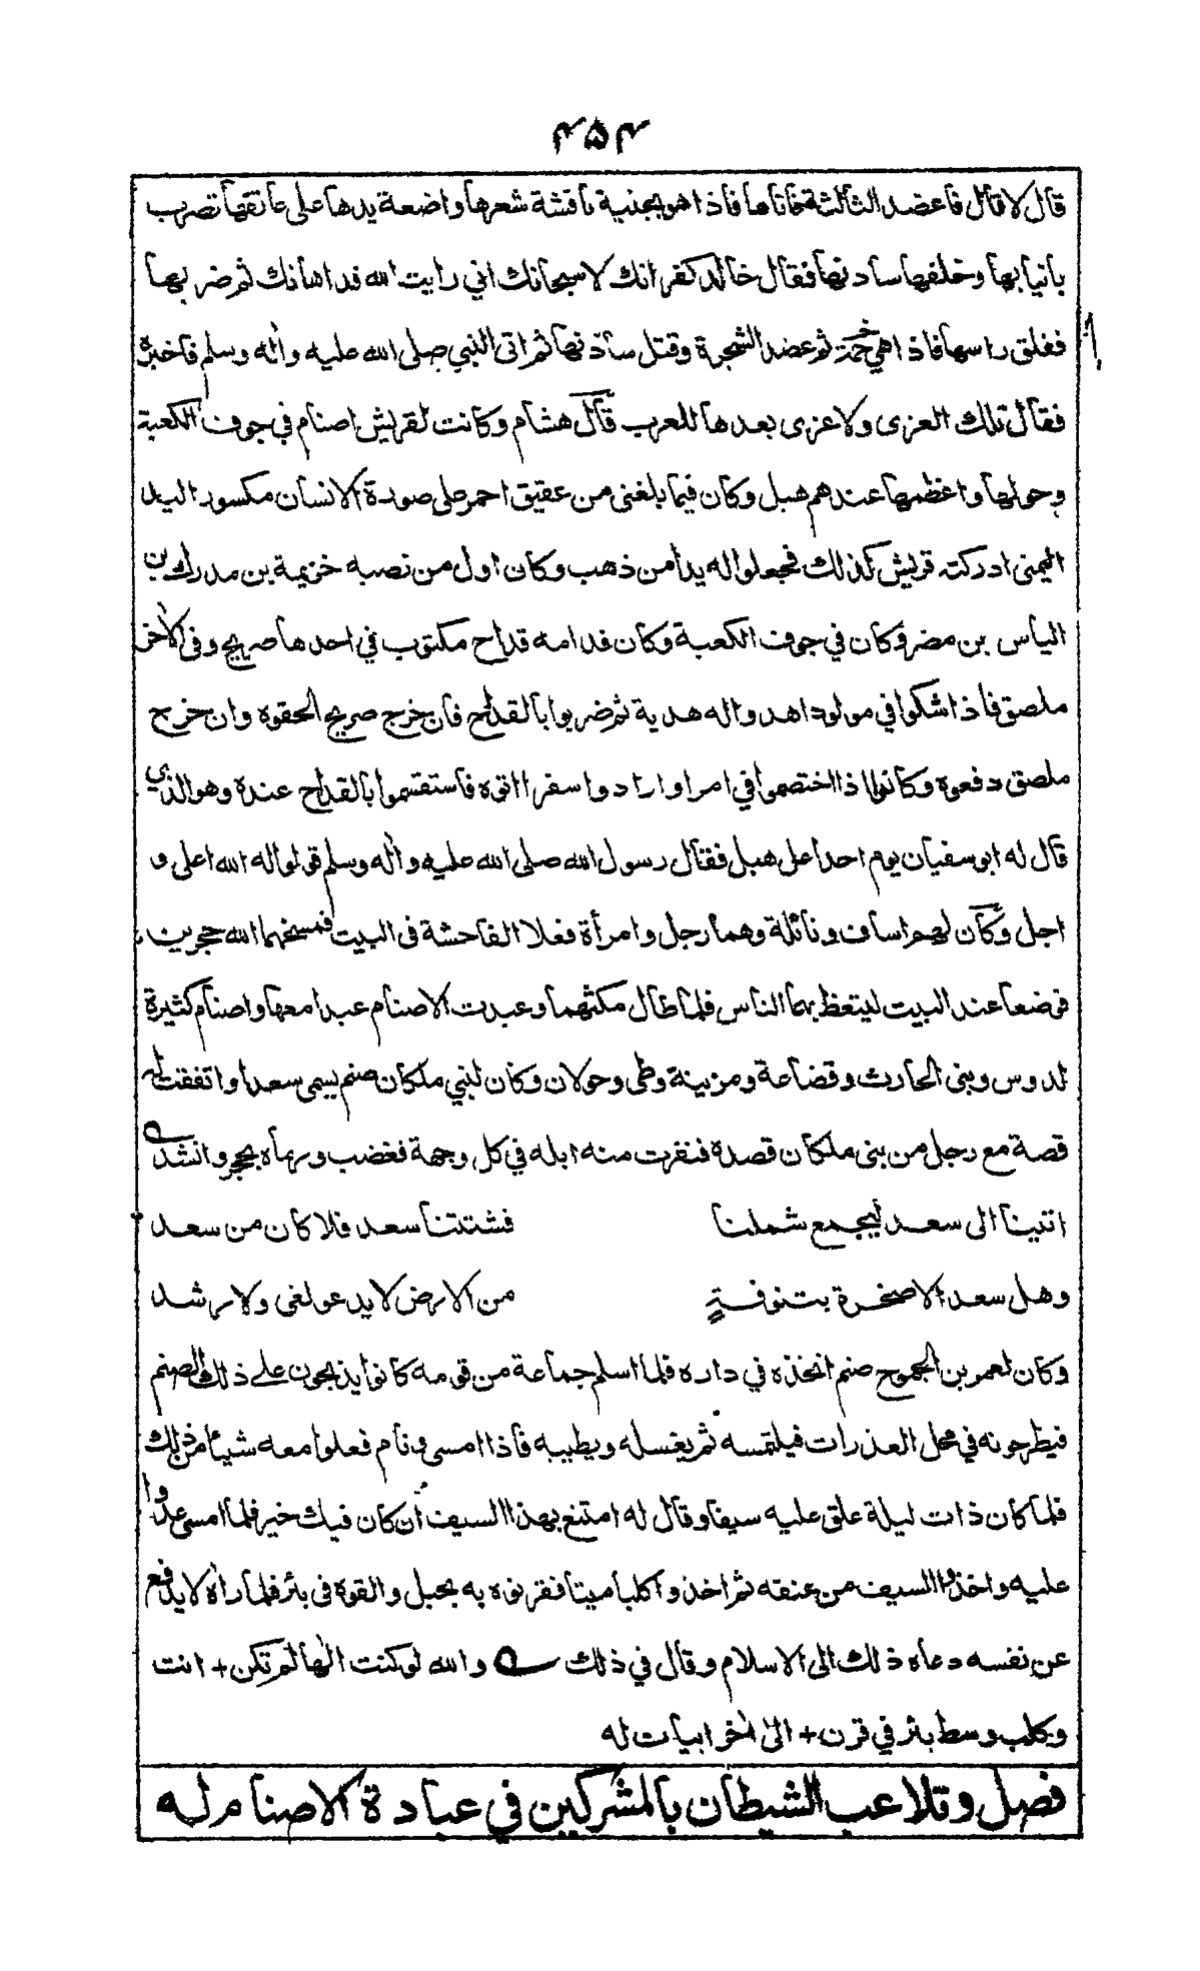 ۴۵۴
قال لا قال فاعضد الثالثة فاتاها فاذا هو بجنية نافشة شعرها واضعة يدها على عاتقها تصرب
بانيابها وخلفها سادنها فقال خالد كفرانك لا سبحانك اني رايت الله قد اهانك ثم ضربها
ففلق راسها فاذا هي حممة ثم عضد الشجرة وقتل سادنها ثم اتى النبي صلى الله عليه واٰله وسلم فاخبره
فقال تلك العزى ولا عزى بعدها للعرب قال هشام وكانت لقريش اصنام في جوف الكعبة
وحولها واعظمها عندهم هبل وكان فيما بلغنى من عقيق احمر على صورة الانسان مكسور اليد
اليمنى ادركته قريش كذلك فجعلوا له يدا من ذهب وكان اول من نصبه خزيمة بن مدركة بن
الياس بن مضر وكان في جوف الكعبة وكان قدامه قداح مكتوب في احدها صريح وفى الاٰخر
ملصق فاذا شكوا في مولود اهدوا له هدية ثم ضربوا بالقداح فان خرج صريح الحقوه وان خرج
ملصق دفعوه وكانوا اذا اختصموا في امر او ارادوا سفرا اتوه فاستقسموا بالقداح عنده وهو الذي
قال له ابو سفيان يوم احد اعل هبل فقال رسول الله صلى الله عليه واٰله وسلم قولوا له الله اعلى و
اجل وكان لهم اساف ونائلة وهما رجل وامرأة فعلا الفاحشة فى البيت فمسخهما الله حجرين
فوضعا عند البيت ليتعظ بهما الناس فلما طال مكثهما وعبدت الاصنام عبدا معها واصنام كثيرة
لدوس وبنى الحارث وقضاعة ومزينة وطى وحولان وكان لبني ملكان صنم يسمى سعدا واتفقت له
قصة مع رجل من بنى ملكان قصده فنفرت منه ابله في كل وجهة فغضب ورماه بحجر وانشد
اتينا الى سعد ليجمع شملنا فشتتنا سعد فلا كان من سعد
وهل سعد الا صخرة بتنوفةٍ من الارض لا يدعو لغى ولا رشد
وكان لعمر بن الجموح صنم اتخذه في داره فلما اسلم جماعة من قومه كانوا يذبحون على ذلك الصنم
فيطرحونه في محل العذرات فيلتمسه ثم يغسله ويطيبه فاذا امسى ونام فعلوا معه شيئا من ذلك
فلما كان ذات ليلة علق عليه سيفا وقال له امتنع بهذا السيف ان كان فيك خير فلما امسى عدوا
عليه واخذوا السيف من عنقه ثم اخذوا كلبا ميتا فقرنوه به بحبل والقوه فى بئر فلما راٰه لا يدفع
عن نفسه دعاه ذلك الى الاسلام وقال في ذلك والله لو كنت الٰها لم تكن + انت
وكلب وسط بئر في قرن + الى اٰخر ابيات له
فصل وتلاعب الشيطان بالمشركين في عبادة الاصنام له